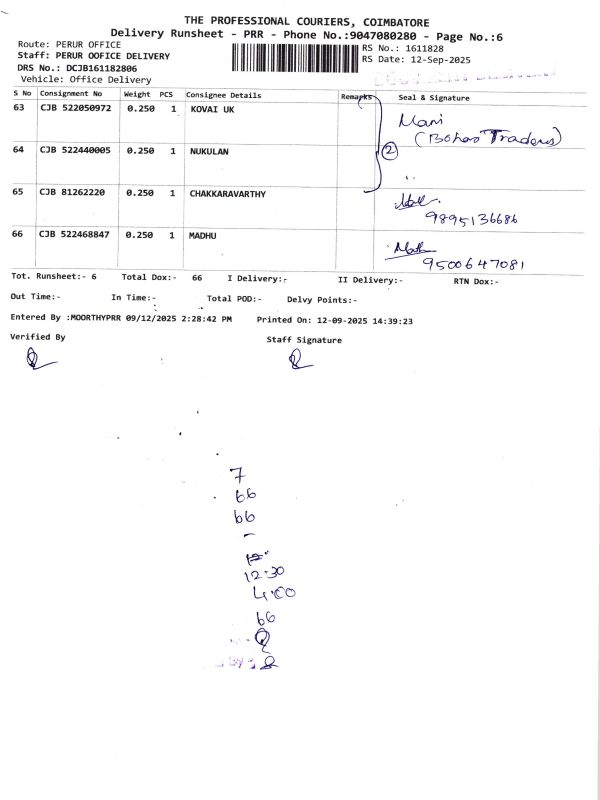 THE PROFESSIONAL COURIERS, COIMBATORE
Delivery Runsheet - PRR - Phone No.:9047080280 - Page No.:6
Route: PERUR OFFICE
Staff: PERUR OOFICE DELIVERY
DRS No.: DCJB161182806
Vehicle: Office Delivery
RS No.: 1611828
RS Date: 12-Sep-2025
S No Consignment No Weight PCS Consignee Details Remarks Seal & Signature
63 CJB 522050972 0.250 1 KOVAI UK
Mani
(Bohas Traders)
64 CJB 522440005 0.250 1 NUKULAN 2
65 CJB 81262220 0.250 1 CHAKKARAVARTHY
9895136686
66 CJB 522468847 0.250 1 MADHU
9500647081
Tot. Runsheet:- 6 Total Dox:- 66 I Delivery:- II Delivery:- RTN Dox:-
Out Time:- In Time:- Total POD:- Delvy Points:-
Entered By :MOORTHYPRR 09/12/2025 2:28:42 PM Printed On: 12-09-2025 14:39:23
Verified By Staff Signature
7
66
66
-
12:30
4:00
66